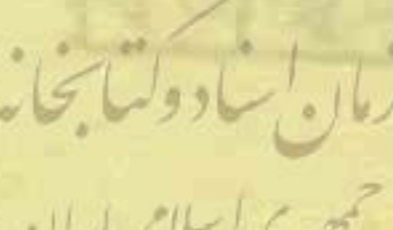 زمان اسناد و کتابخانه
جمهوری اسلامی ایران